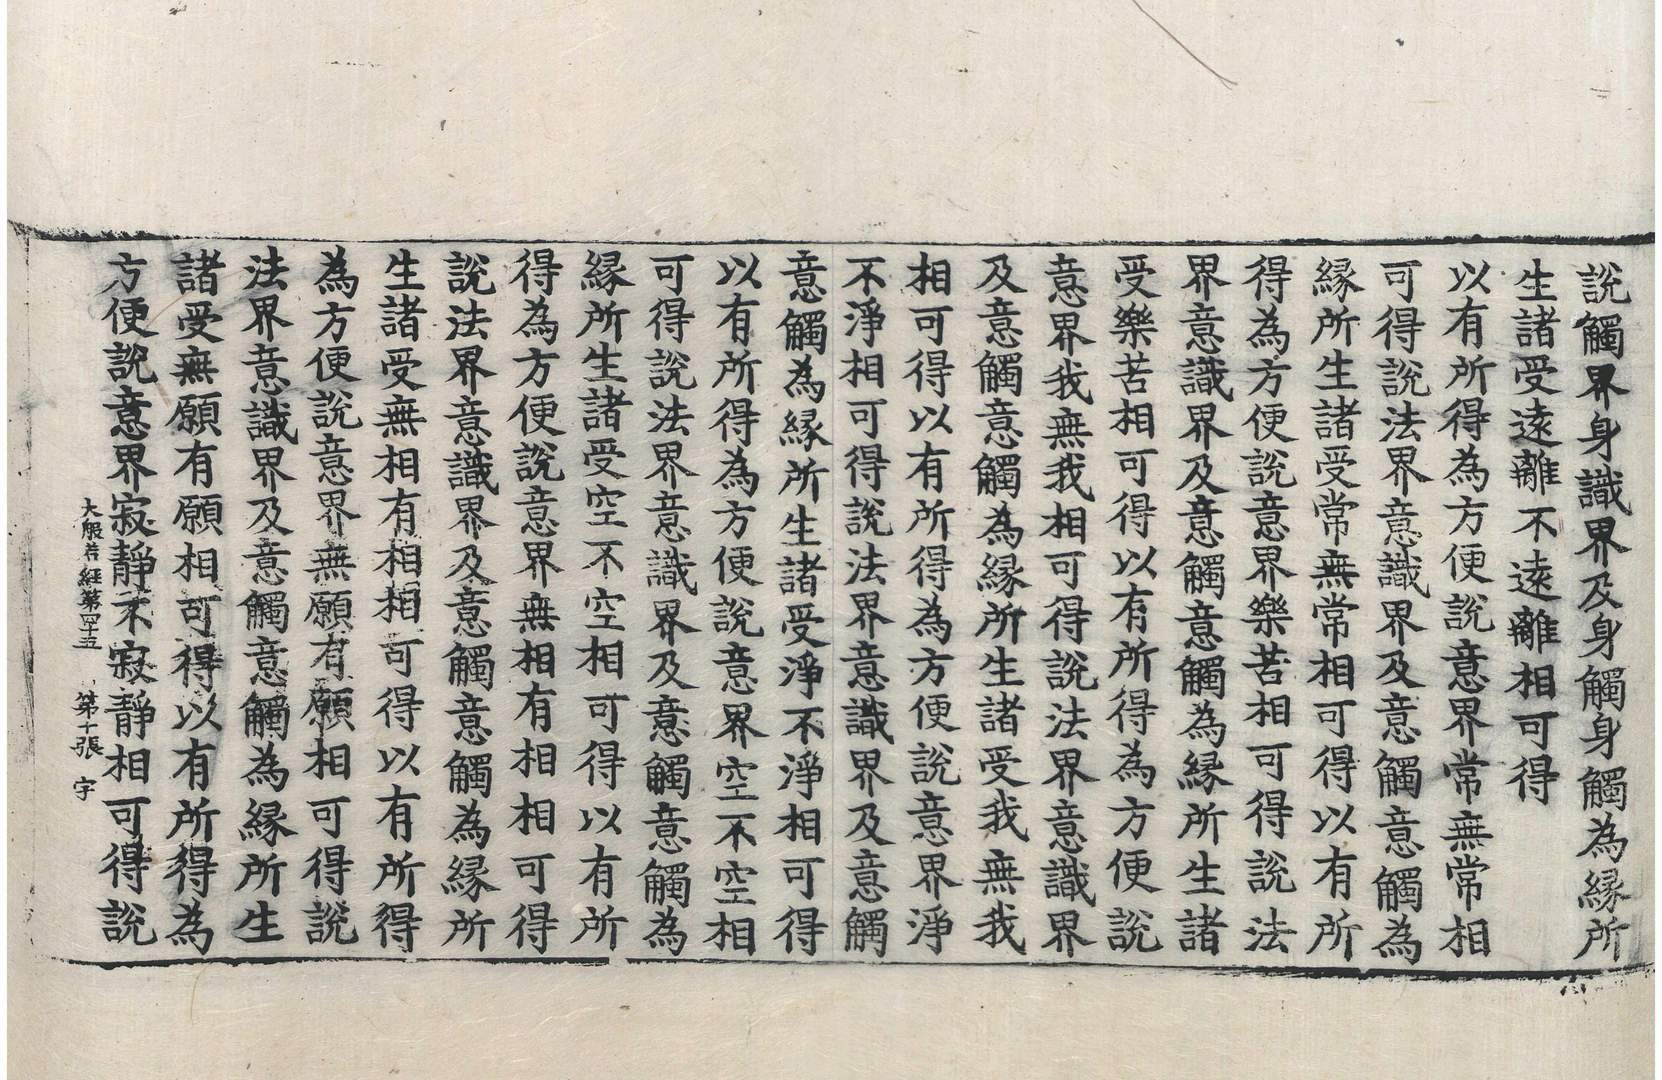 説觸界身識界及身觸身觸為縁所
生諸受遠離不遠離相可得
以有所得為方便說意界常無常相
可得說法界意識界及意觸意觸為
縁所生諸受常無常相可得以有所
得為方便說意界樂苦相可得說法
界意識界及意觸意觸為縁所生諸
受樂苦相可得以有所得為方便說
意界我無我相可得說法界意識界
及意觸意觸為縁所生諸受我無我
相可得以有所得為方便說意界淨
不淨相可得說法界意識界及意觸
意觸為縁所生諸受淨不淨相可得
以有所得為方便說意界空不空相
可得說法界意識界及意觸意觸為
縁所生諸受空不空相可得以有所
得為方便說意界無相有相相可得
說法界意識界及意觸意觸為縁所
生諸受無相有相相可得以有所得
為方便說意界無願有願相可得說
法界意識界及意觸意觸為縁所生
諸受無願有願相可得以有所得為
方便說意界寂靜不寂靜相可得說
大般若経第四十五 第十張 字